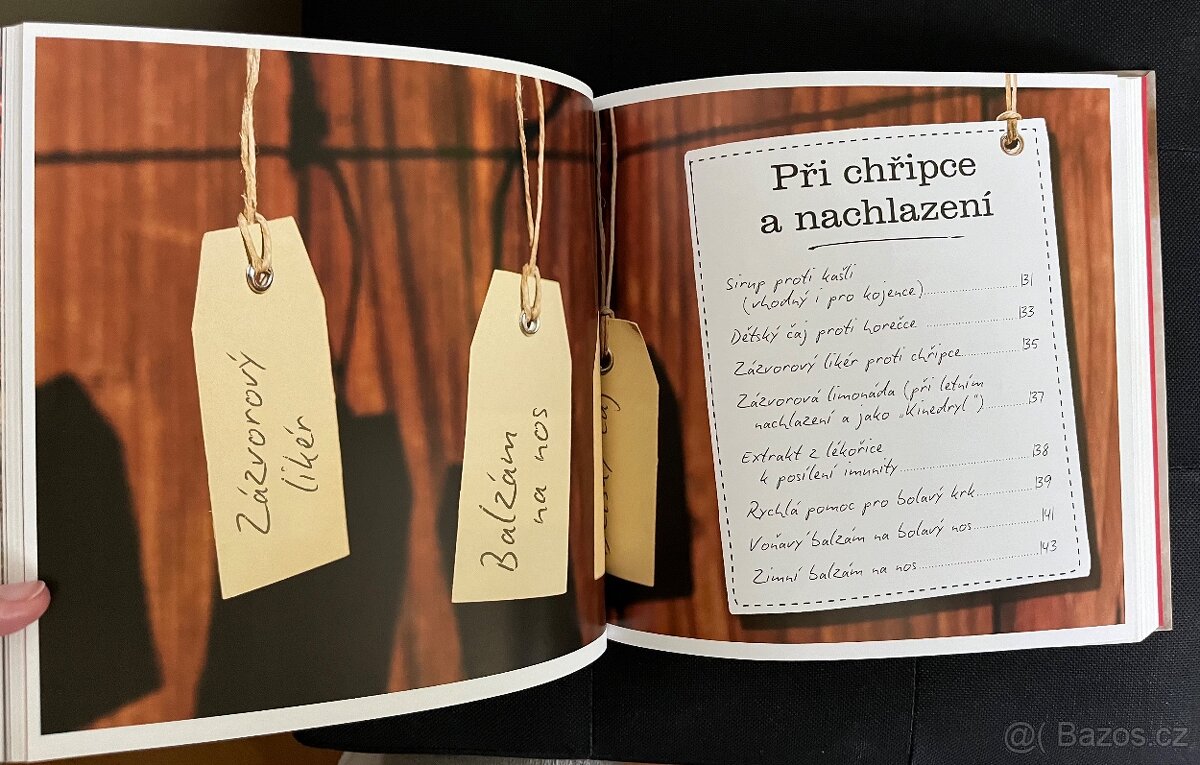 Zázvorový
likér
Balzám
na nos
Při chřipce
a nachlazení
Sirup proti kašli
(vhodný i pro kojence)..........131
Dětský čaj proti horečce ..........133
Zázvorový likér proti chřipce..........135
Zázvorová limonáda (při letním
nachlazení a jako „Kinedryl")..........137
Extrakt z lékořice
k posílení imunity..........138
Rychlá pomoc pro bolavý krk..........139
Voňavý balzám na bolavý nos..........141
Zimní balzám na nos..........143
@( Bazos.cz